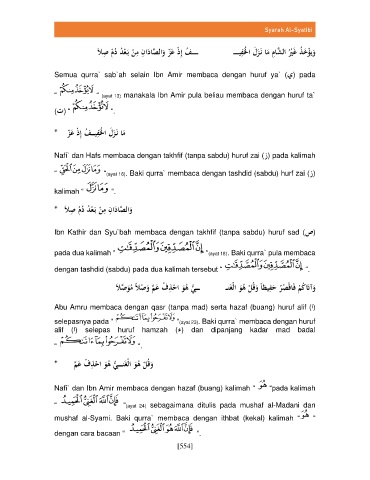 Syarah Al-Syatibi
وَيُؤْخَذُ غَيْرُ الشَّامِ مَا نَزَلَ الْخَفِيـ ـفُ إِذْ عَزَّ وَالصَّادَانِ مِنْ بَعْدُ دُمْ صِلَا
Semua qurra` sab`ah selain Ibn Amir membaca dengan huruf ya` (ي) pada
" لَا يُؤْخَذُ مِنكُمْ " (ayat 15) manakala Ibn Amir pula beliau membaca dengan huruf ta`
(ت) " لَا تُؤْخَذُ مِنكُمْ ".
* مَا نَزَلَ الْخَفِيـفُ إِذْ عَزَّ
Nafi` dan Hafs membaca dengan takhfif (tanpa sabdu) huruf zai (ز) pada kalimah
" وَمَا نَزَلَ مِنَ ٱلْحَقِّ "(ayat 16). Baki qurra` membaca dengan tashdid (sabdu) hurf zai (ز)
kalimah " وَمَا نَزَّلَ ".
* وَالصَّادَانِ مِنْ بَعْدُ دُمْ صِلَا
Ibn Kathir dan Syu`bah membaca dengan takhfif (tanpa sabdu) huruf sad (ص)
pada dua kalimah " إِنَّ ٱلْمُصَدِّقِينَ وَٱلْمُصَدِّقَـٰتِ "(ayat 18). Baki qurra` pula membaca
dengan tashdid (sabdu) pada dua kalimah tersebut " إِنَّ ٱلْمُصَّدِّقِينَ وَٱلْمُصَّدِّقَـٰتِ ".
وَآتَاكُمْ فَاقْصُرْ حَفِيظًا وَقُلْ هُوَ الْغَـ ـنِيُّ هُوَ احْذِفْ عَمَّ وَصْلًا مُوَصَّلَا
Abu Amru membaca dengan qasr (tanpa mad) serta hazaf (buang) huruf alif (ا)
selepasnya pada " وَلَا تَفْرَحُوا۟ بِمَآ أَتَىٰكُمْ "(ayat 23). Baki qurra` membaca dengan huruf
alif (ا) selepas huruf hamzah (ء) dan dipanjang kadar mad badal
" وَلَا تَفْرَحُوا۟ بِمَآ ءَاتَىٰكُمْ ".
* وَقُلْ هُوَ الْغَـنِيُّ هُوَ احْذِفْ عَمَّ
Nafi` dan Ibn Amir membaca dengan hazaf (buang) kalimah " هُوَ "pada kalimah
" فَإِنَّ ٱللَّهَ ٱلْغَنِىُّ ٱلْحَمِيدُ "(ayat 24) sebagaimana ditulis pada mushaf al-Madani dan
mushaf al-Syami. Baki qurra` membaca dengan ithbat (kekal) kalimah " هُوَ "
dengan cara bacaan " فَإِنَّ ٱللَّهَ هُوَ ٱلْغَنِىُّ ٱلْحَمِيدُ ".
[554]